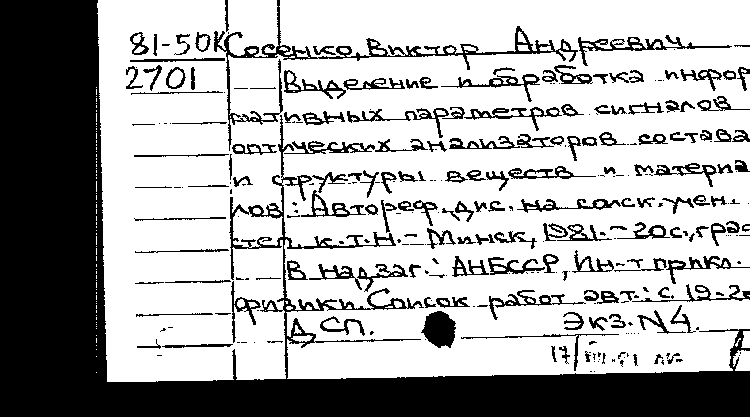 81-50К Сосенко, Виктор Андреевич.
2701 Выделение и обработка инфор
мативных параметров сигналов
оптических анализаторов состава
и структуры веществ и материа
лов: Автореф. дис. на соиск. учен.
степ. к.т.н. - Минск, 1981. - 20с., граф
В надзаг.: АНБССР, Ин-т прикл.
физики. Список работ авт.: с. 19-20
ДСП. Экз. N4.
17/